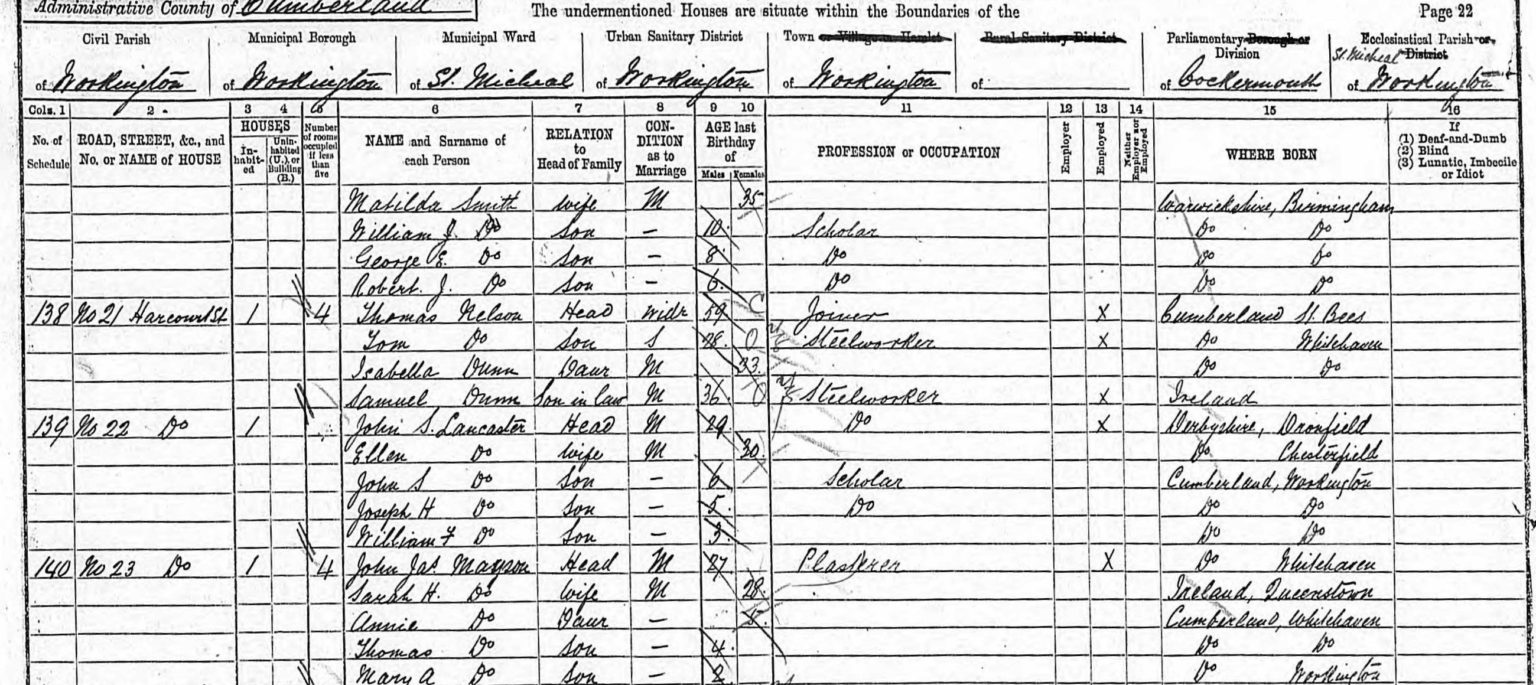 Administrative County of Cumberland The undermentioned Houses are situate within the Boundaries of the Page 22
Civil Parish Municipal Borough Municipal Ward Urban Sanitary District Town or Village or Hamlet Rural Sanitary District Parliamentary Borough or Division Ecclesiastical Parish or District
of Workington of Workington of St. Micheal of Workington of Workington of of Cockermouth of St. Micheal Workington
Cols. 1 2 3 4 5 6 7 8 9 10 11 12 13 14 15 16
No. of Schedule ROAD, STREET, &c., and No. or NAME of HOUSE HOUSES Inhabited Uninhabited (U.), or Building (B.) Number of rooms occupied if less than five NAME and Surname of each Person RELATION to Head of Family CONDITION as to Marriage AGE last Birthday of Males Females PROFESSION or OCCUPATION Employer Employed Neither Employer nor Employed WHERE BORN If (1) Deaf-and-Dumb (2) Blind (3) Lunatic, Imbecile or Idiot
Matilda Smith wife M 35 Warwickshire, Birmingham
William J. Do son — 10 Scholar Do Do
George E. Do son — 8 Do Do Do
Robert J. Do son — 6 Do Do Do
138 No 21 Harcourt St 1 4 Thomas Nelson Head widr 59 Joiner X Cumberland St. Bees
Tom Do son S 28 Steelworker X Do Whitehaven
Isabella Dunn Daur M 33 Do Do
Samuel Dunn Son in law M 36 Steelworker X Ireland
139 No 22 Do 1 John S. Lancaster Head M 29 Do X Derbyshire, Dronfield
Ellen Do wife M 30 Do Chesterfield
John S Do son — 6 Scholar Cumberland, Workington
Joseph H Do son — 5 Do Do Do
William F Do Son — 3 Do Do
140 No 23 Do 1 4 John Jas. Mayson Head M 27 Plasterer X Do Whitehaven
Sarah H. Do wife M 28 Ireland, Queenstown
Annie Do Daur — 5 Cumberland, Whitehaven
Thomas Do son — 4 Do Do
Mary A Do son — 2 Do Workington